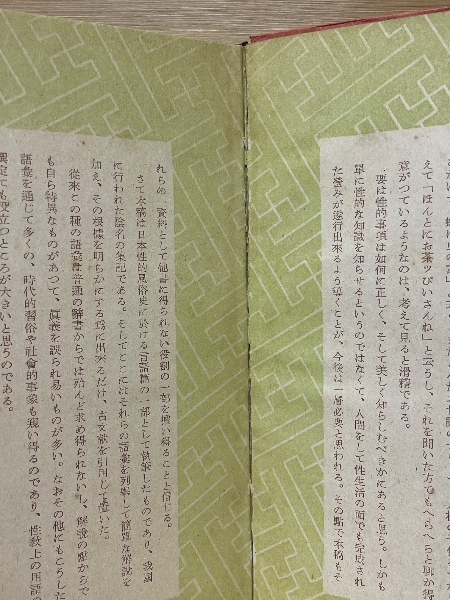 えて「ほんとにお茶ッぴいさんね」と云うし、それを聞いた方でもへらへらと
意がつているようなのは、考えて見ると滑稽である。
要は性的事項は如何に正しく、そして美しく知らしむべきかにあると思う。しかも
單に性的な知識を知らせるというのではなくて、人間をして性生活の面でも完成され
た營みが遂行出来るよう導くことが、今後は一層必要と思われる。その點で本稿もそ
れらの一資料として他書に得られない役割の一部を擔い得ることと信じる。
さて本稿は日本性的風俗史に於ける言語篇の一部として執筆したものであり、我國
に行われた陰名の集記である。そしてここにはそれらの語彙を列擧して簡單な解説を
加え、その根據を明らかにする爲に出来るだけ、古文献を引用して置いた。
從來この種の語彙は普通の辭書からでは殆んど求め得られないし、解説の點からで
も自ら特異なものがあつて、眞義を誤られ易いものが多い。なおその他にもこうした
語彙を通じて多くの、時代的習俗や社會的事象も窺い得るのであり、性教上の用語の
選定にも役立つところが大きいと思うのである。